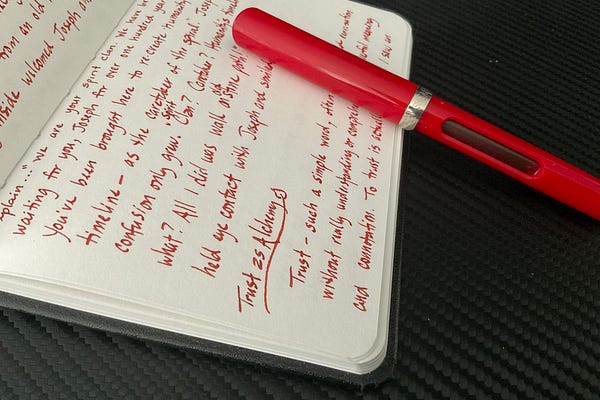 an old
welcomed Joseph,
"We are your spirit clan. We have
waiting for you, Joseph for over one hundred
You've been brought here to recreate humanity
timeline – as the caretaker of the spirit"
confusion only grew. spirit Clan? Caretaker Humanity's
what? All I did was walk stone path
held eye contact with Joseph and
Trust as Alchemy
Trust – such a simple word, often
without really understanding or
and connotation. To trust is
meaning
I saw an